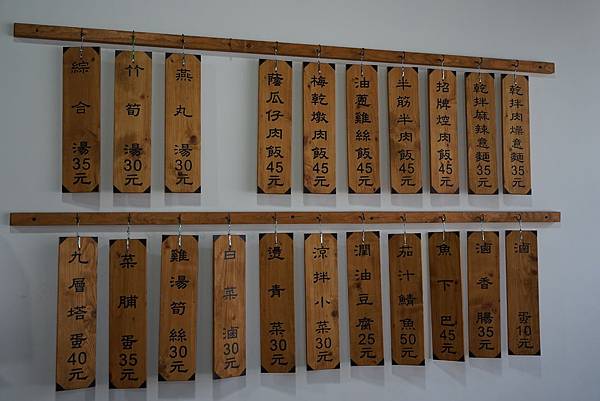 綜合湯35元
竹筍湯30元
燕丸湯30元
蔭瓜仔肉飯45元
梅乾燉肉飯45元
油蔥雞絲飯45元
半筋半肉飯45元
招牌焢肉飯45元
乾拌麻辣意麵35元
乾拌肉燥意麵35元
九層塔蛋40元
菜脯蛋35元
雞湯筍絲30元
白菜滷30元
燙青菜30元
涼拌小菜30元
潤油豆腐25元
茄汁鯖魚50元
魚下巴45元
滷香腸35元
滷蛋10元